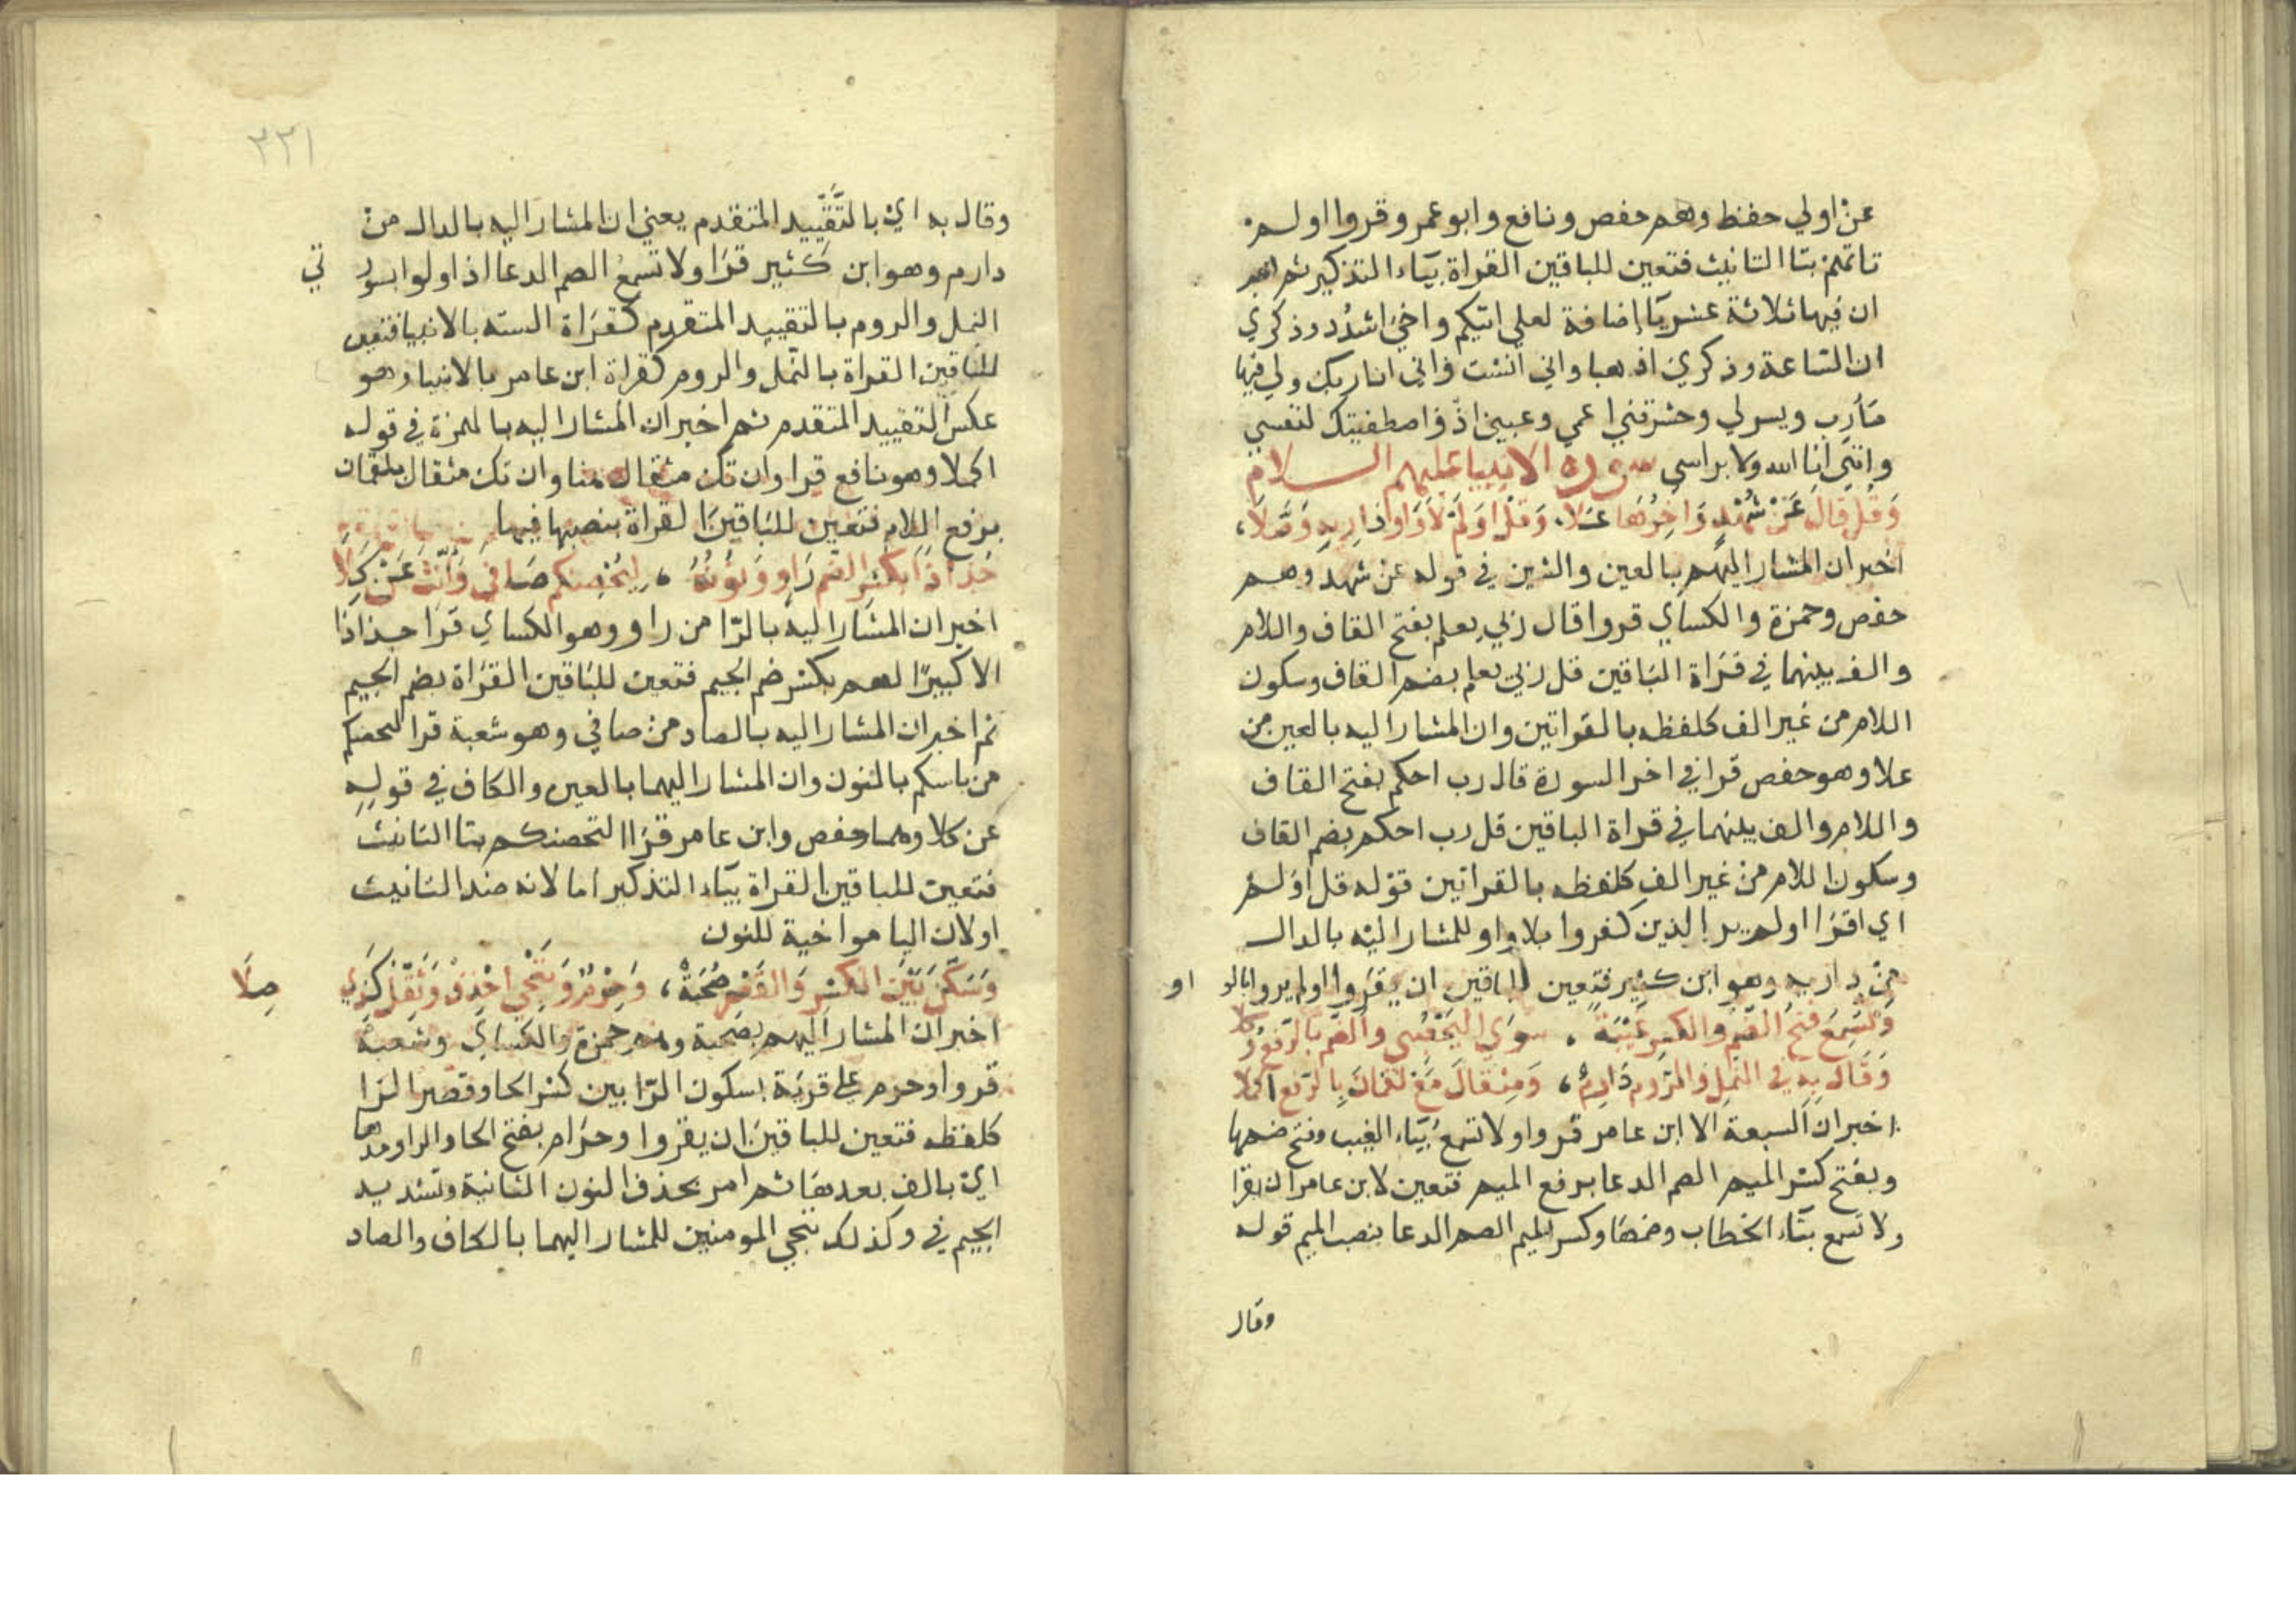 عن اولي حفظ وهم حفص ونافع وابو عمر وقروا اولم
تاتهم بتا التانيث فتعين للباقين القراة بيَاء التذكير ثم اخبر
ان فيها ثلاثة عشر يَا إضافة لعلي اتيكم واخي اشدُد وذكري
ان السَاعة وذكري اذهبا واني انست واني انا ربك ولي فيها
مَآرب ويسر لي وحشرتني اعمي وعيني اذ واصطفيتك لنفسي
وانني انا الله ولا براسي سورة الانبيا عليهم السلام
وَقُل قالَ عَنْ شُهْدٍ وَاخِرُهَا عَلا، وَقُل اوَلَمْ لاَ وَاوَ دَارِيهِ وَصَّلاَ،
اخبر ان المشار اليهم بالعين والشين في قوله عن شهد وهم
حفص وحمزة والكساي قروا قال ربي يعلم بفتح القاف واللام
والف بينهما في قرَاة البَاقين قل ربي يعلم بضم القاف وسكون
اللام من غير الف كلفظه بالقراتين وان المشار اليه بالعين من
علا وهو حفص قرا في اخر السورة قال رب احكم بفتح القاف
واللام والف بينهما في قراة الباقين قل رب احكم بضم القاف
وسكون اللام من غير الف كلفظه بالقراتين قوله قل اوَلم
اي اقرَا اولم ير الذين كفروا بلا واو للمشار اليه بالدال
من داريه وهو ابن كثير فتعين للباقين ان يقرَوا اولم يروا بالو او
وَتُسْمِعُ فَتْحُ الضَّمِ وَالكسرِ غَيْبَةً ، سوَي اليَحْصُبي والصُّم بالرَّفعِ وُكلا
وَقَالَ بِهِ في النَّملِ وَالرّومِ دَارِمٌ، وَمِثقالَ مَعْ لقمَانَ بِالرّفعِ اكملا
اخبر ان السبعة الا ابن عامر قروا ولا تسمع بيَاء الغيب وفتح ضمها
وبفتح كسر الميم الصم الدعا برفع الميم فتعين لابن عامر ان يقرا
ولا تسمع بتَاء الخطاب وضمهَا وكسر الميم الصم الدعا بنصب الميم قوله
وقال
٣٣١
وقال به اي بالتَّقْيِّيد المتقدم يعني ان المشار اليه بالدال من
دارم وهو ابن كثير قرَا ولا تسمعُ الصم الدعا اذا ولوا بسور تي
النمل والروم بالتقييد المتقدم كقرَاة الستة بالانبيا فتعين
للبَاقين القراة بالنَّمل والروم كقراة ابن عامر بالانبيا وهو
عكس التقييد المتقدم ثم اخبر ان المشار اليه بالهمزة في قوله
اكملا وهو نافع قرا وان تكن مثقال هنا وان تك مثقال بلقمان
برفع اللام فتعين للبَاقين القراة بنصبها فيهما
جُذاذًا بكَسْرِ الضَّم رَاوٍ وَنونُهُ ، لِيُحْصِنكم صَافي وَأنَّثَ عَنْ كِلَا
اخبر ان المشَار اليه بالرَّا من راو وهو الكساي قرَا جذاذا
الا كبيرًا لهم بكسر ضم الجيم فتعين للبَاقين القرَاة بضم الجيم
ثم اخبر ان المشار اليه بالصاد من صافي وهو شعبة قرَا لنحصنكم
من باسكم بالنون وان المشار اليهما بالعين والكاف في قوله
عن كلا وهما حفص وابن عامر قرَاا لتحصنكم بتا التانيث
فتعين للباقين القراة بيَاء التذكير اما لانه ضد التانيث
اولان اليا مواخية للنون
وَسَكَّنَ بَيْنَ الكسْرِ وَالقَصْرِ صُحْبَةٌ، وَحِرْمٌ وَنُنْجي احْذِفْ وَثَقِّلْ كَذِي صِلَا
اخبر ان المشار اليهم بصحبة وهم حمزة والكساي وشعبة
قروا وحرم علي قريَة بسكون الرَّا بين كسر الحا وقصر الرَا
كلفظه فتعين للباقينَ ان يقروا وحرَام بفتح الحا والرا ومدها
اي بالف بعدهَا ثم امر بحذف النون الثانية وتشديد
الجيم في وكذلك ننجي المومنين للمشار اليهما بالكاف والصاد